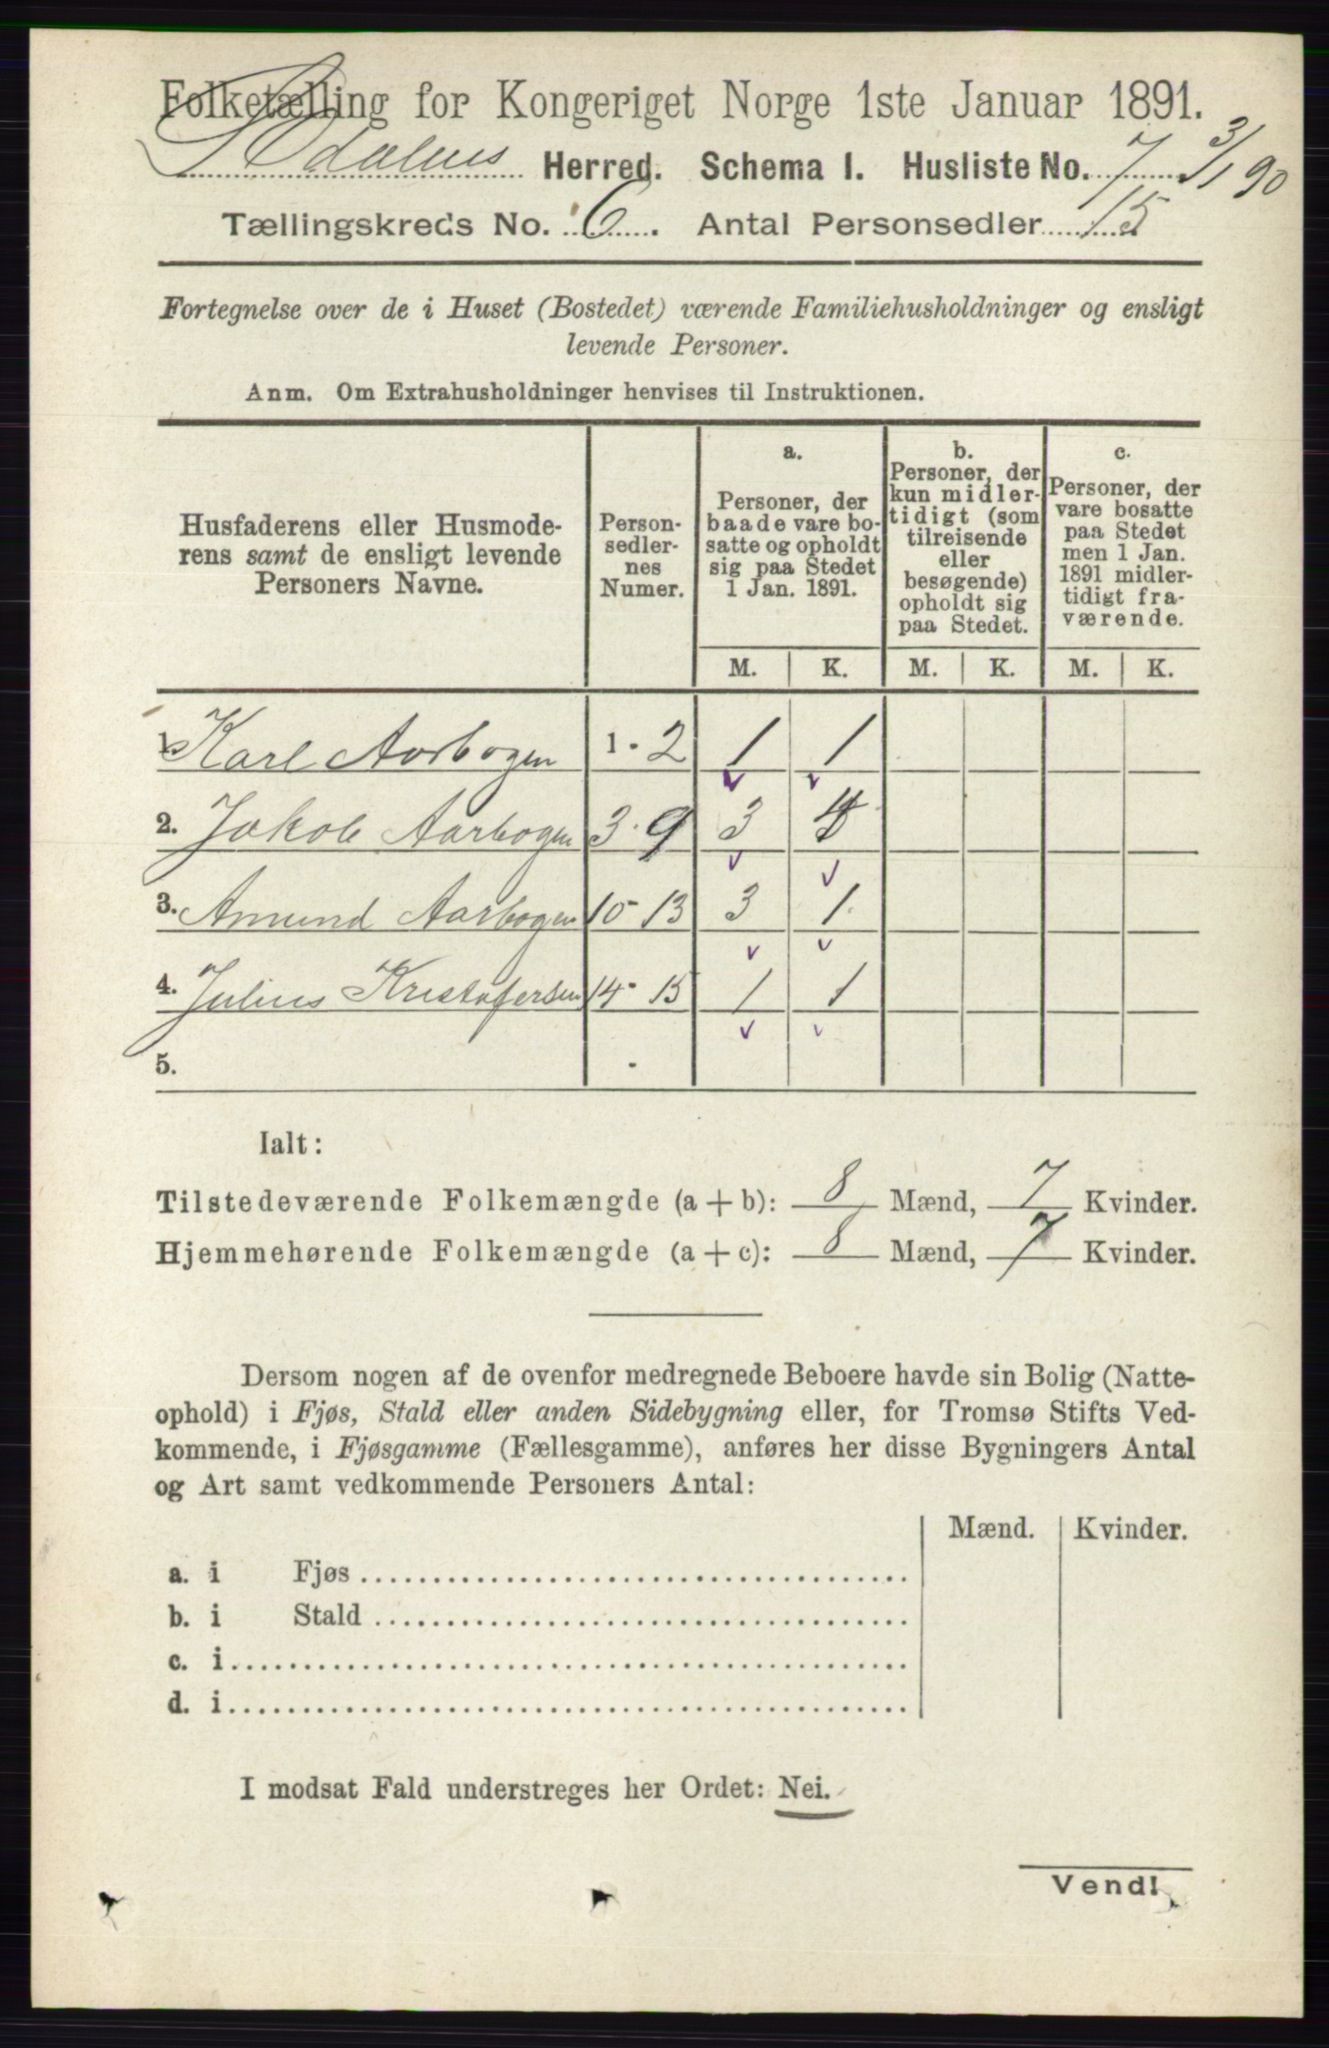 Folketælling for Kongeriget Norge 1ste Januar 1891.
S Odalens Herred. Schema I. Husliste No. 7 3/1 90
Tællingskreds No. 6. Antal Personsedler 15
Fortegnelse over de i Huset (Bostedet) værende Familiehusholdninger og ensligt
levende Personer.
Anm. Om Extrahusholdninger henvises til Instruktionen.
Husfaderens eller Husmode-
rens samt de ensligt levende
Personers Navne.
Person-
sedler-
nes
Numer.
a.
Personer, der
baade vare bo-
satte og opholdt
sig paa Stedet
1 Jan. 1891.
b.
Personer, der
kun midler-
tidigt (som
tilreisende
eller
besøgende)
opholdt sig
paa Stedet.
c.
Personer, der
vare bosatte
paa Stedet
men 1 Jan.
1891 midler-
tidigt fra-
værende.
M. K. M. K. M. K.
1. Karl Aarbogen 1 - 2 1 1
2. Jakob Aarbogen 3 - 9 3 4
3. Amund Aarbogen 10 - 13 3 1
4. Julius Kristofersen 14 - 15 1 1
5. -
Ialt:
Tilstedeværende Folkemængde (a + b): 8 Mænd, 7 Kvinder.
Hjemmehørende Folkemængde (a + c): 8 Mænd, 7 Kvinder.
Dersom nogen af de ovenfor medregnede Beboere havde sin Bolig (Natte-
ophold) i Fjøs, Stald eller anden Sidebygning eller, for Tromsø Stifts Ved-
kommende, i Fjøsgamme (Fællesgamme), anføres her disse Bygningers Antal
og Art samt vedkommende Personers Antal:
Mænd. Kvinder.
a. i Fjøs
b. i Stald
c. i
d. i
I modsat Fald understreges her Ordet: Nei.
Vend!